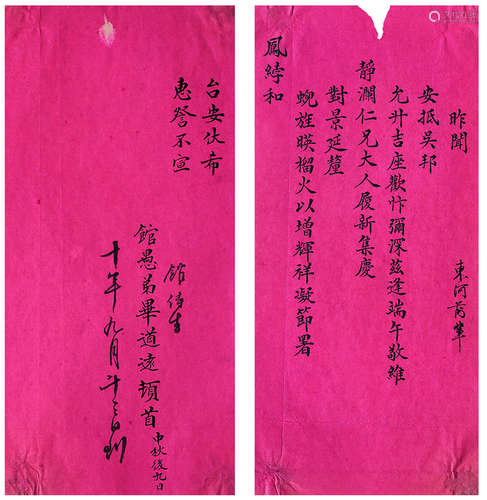 東河前輩
昨聞
安抵吳邦
允升吉座歡忭彌深茲逢端午敬維
靜瀾仁兄大人履新集慶
對景延釐
蜺旌暎榴火以增輝祥凝節署
鳳綍和
台安伏布
惠詧不宣
館侍生
館愚弟畢道遠頓首
中秋後九日
十年九月廿三日到